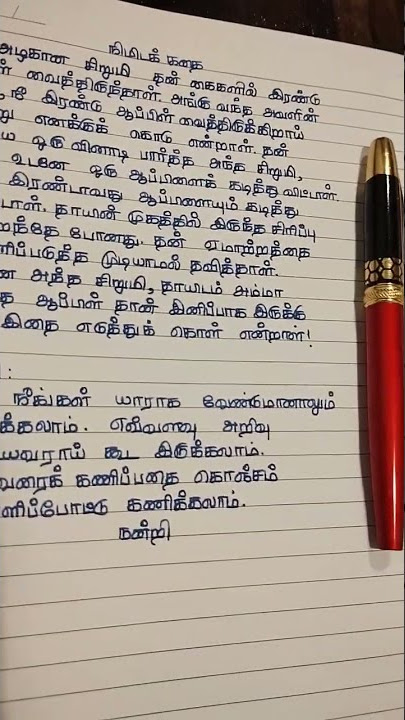 நிமிடக் கதை
அழகான சிறுமி தன் கைகளில் இரண்டு
வைத்திருந்தாள். அங்கு வந்த அவளின்
நீ இரண்டு ஆப்பிள் வைத்திருக்கிறாய்
எனக்குக் கொடு என்றாள். தன்
ஒரு வினாடி பார்த்த அந்த சிறுமி,
உடனே ஒரு ஆப்பிளைக் கடித்து விட்டாள்.
இரண்டாவது ஆப்பிளையும் கடித்து
தாயின் முகத்தில் இருந்த சிரிப்பு
போனது. தன் ஏமாற்றத்தை
முடியாமல் தவித்தாள்.
அந்த சிறுமி, தாயிடம் அம்மா
ஆப்பிள் தான் இனிப்பாக இருக்கு
இதை எடுத்துக் கொள் என்றாள்!
:
நீங்கள் யாராக வேண்டுமானாலும்
க்கலாம். எவ்வளவு அறிவு
யவராய் கூட இருக்கலாம்.
வரைக் கணிப்பதை கொஞ்சம்
ளிப்போட்டு கணிக்கலாம்.
நன்றி